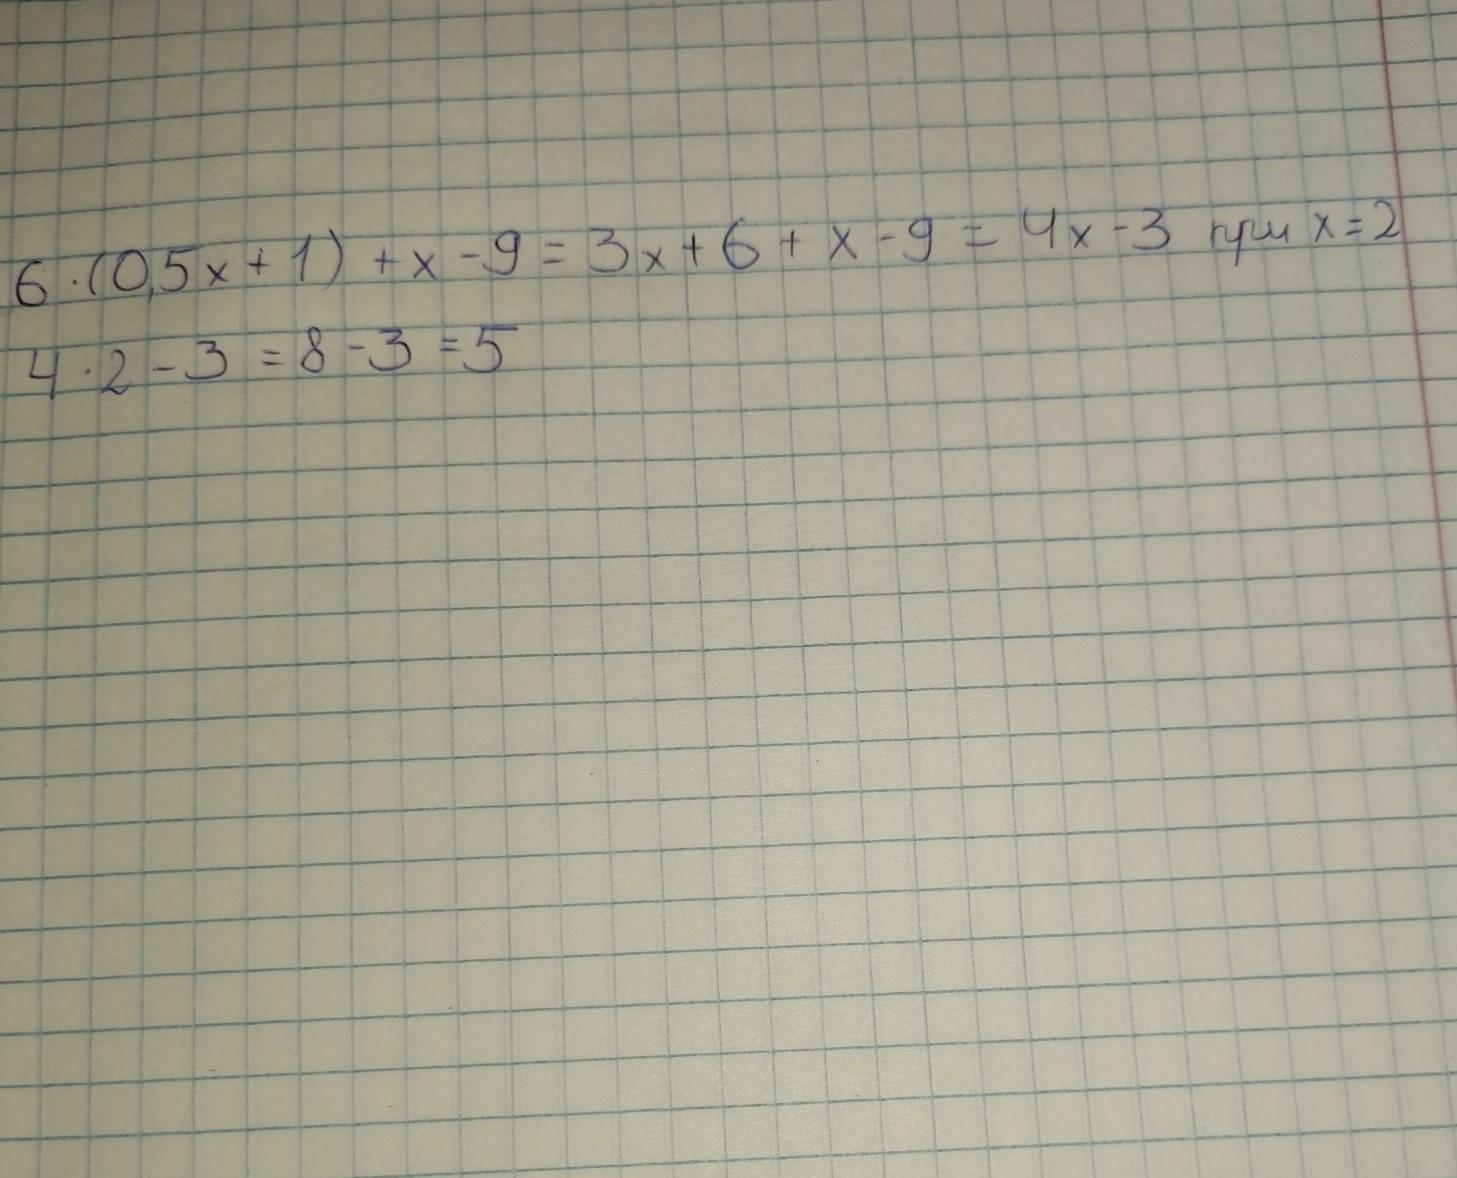 6·(0,5x+1)+x-9=3x+6+x-9=4x-3 при x=2
4·2-3=8-3=5